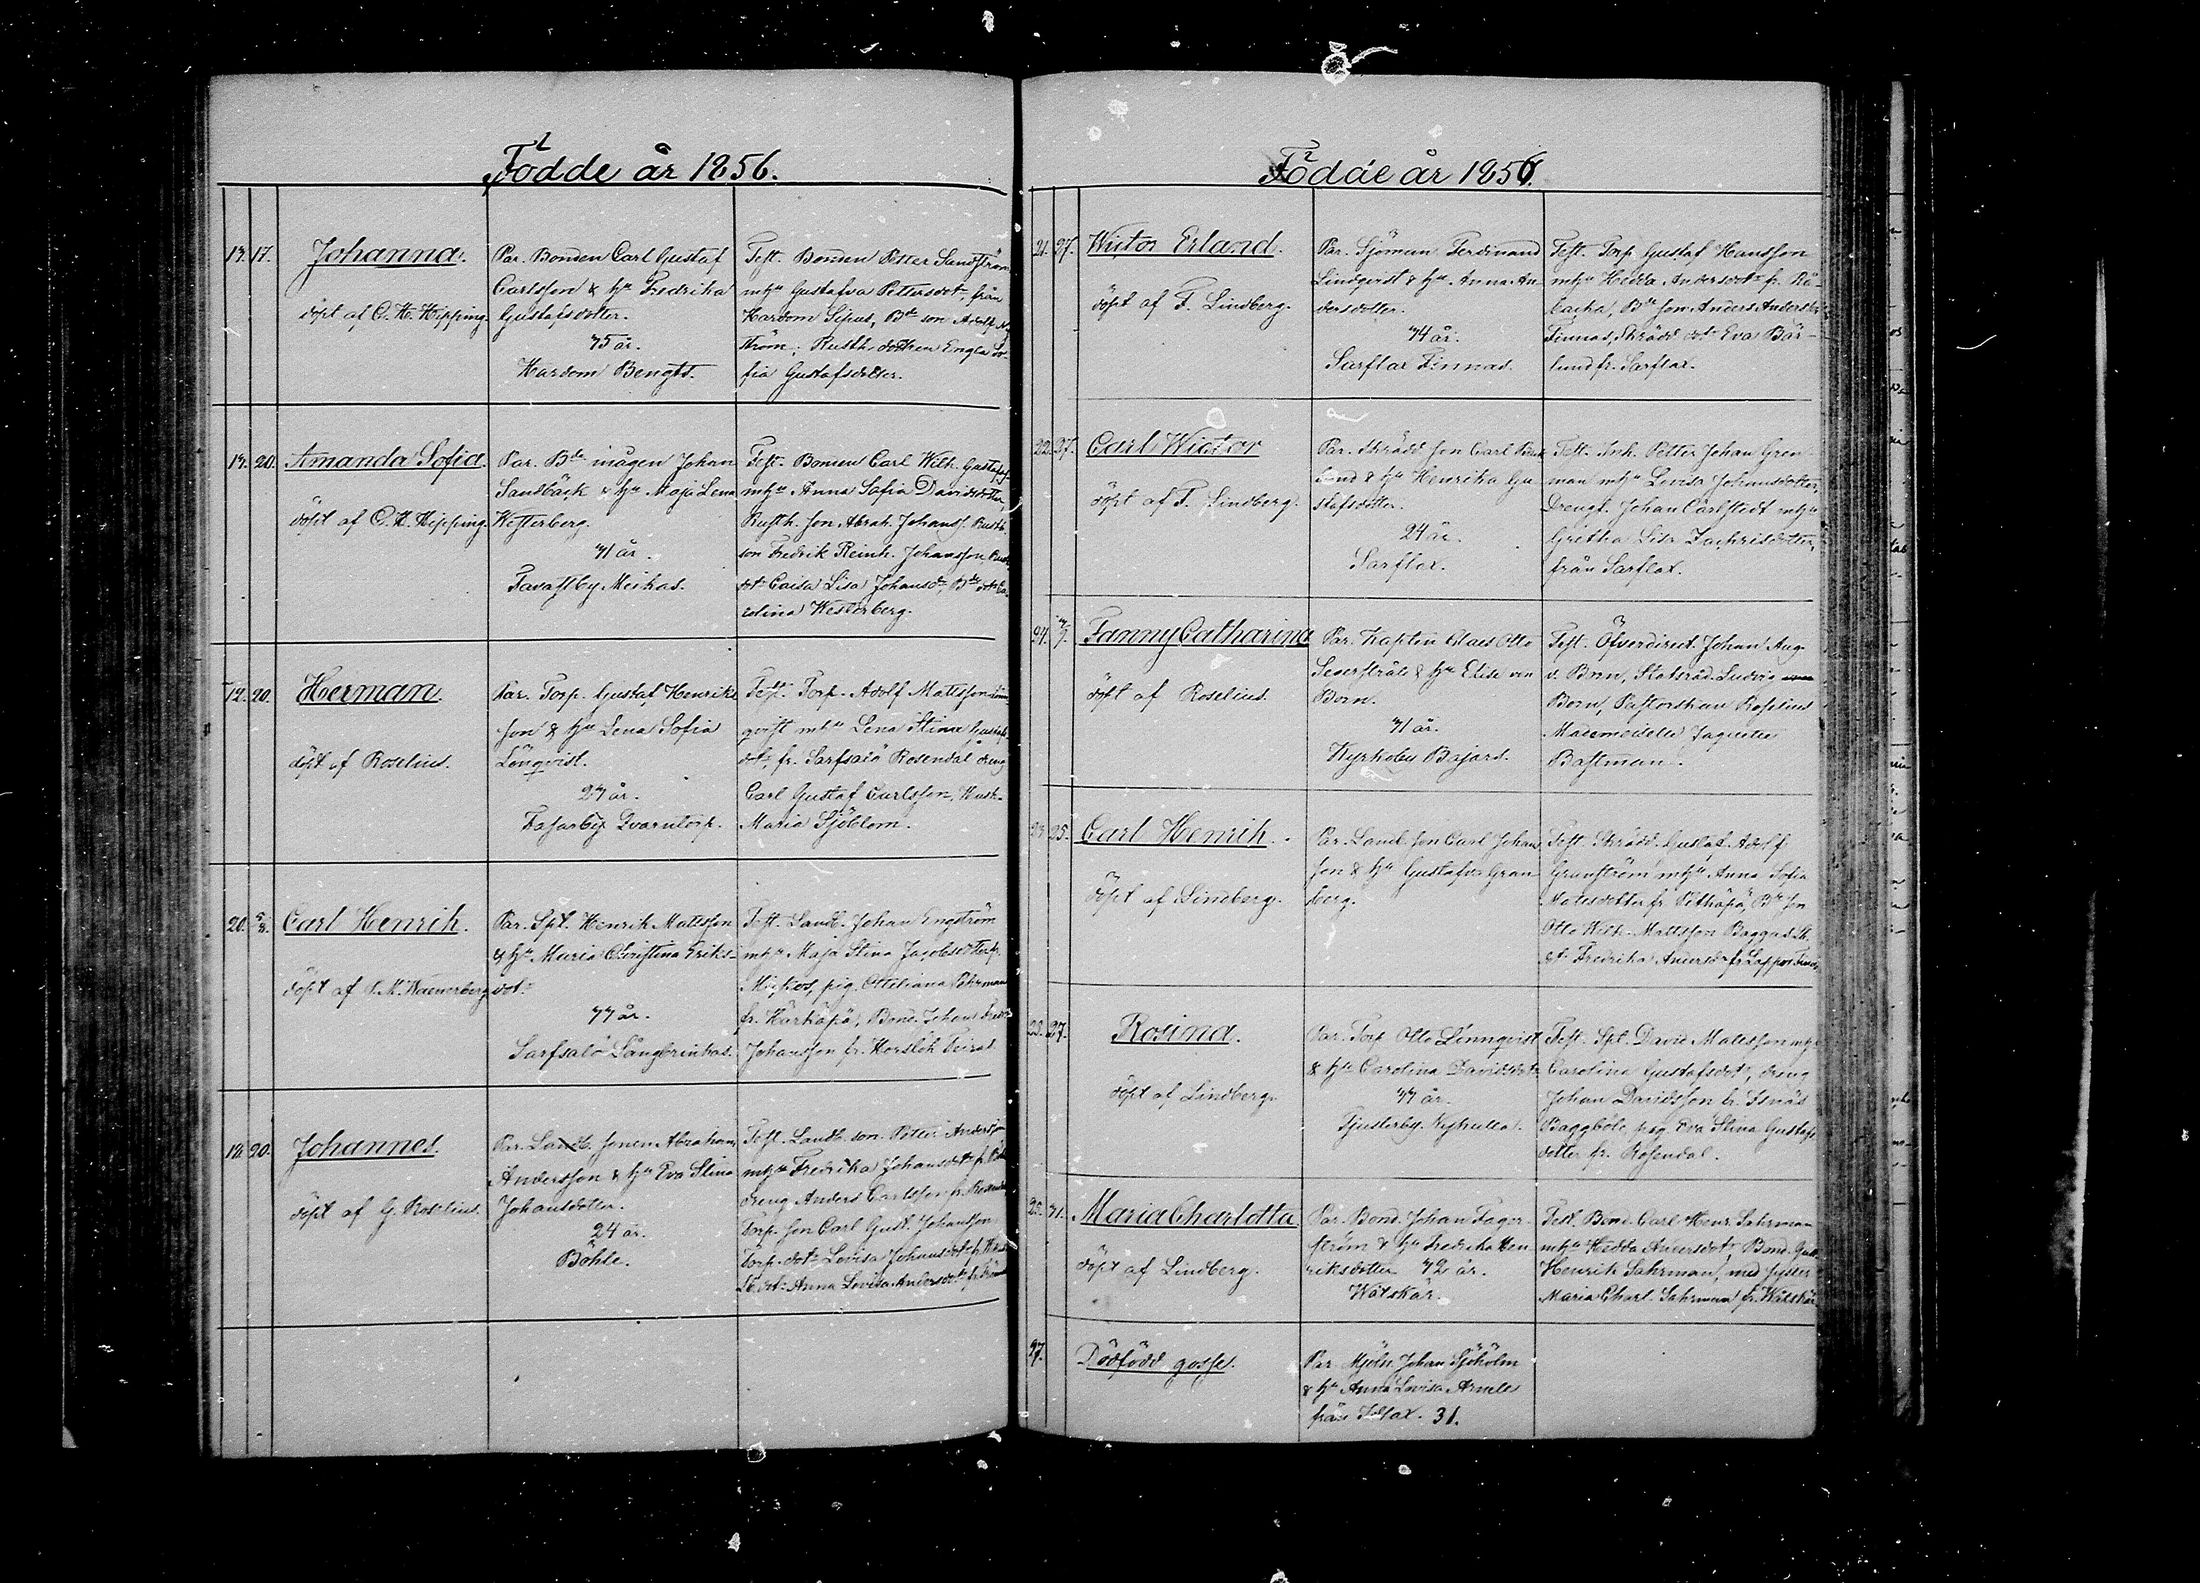 Födde år 1856.
17.
Johanna.
döpt af C. H. Hipping
Par. Bonden Carl Gustaf
Carlsson & hu Fredrika
Gustafsdotter.
35 år.
Hardom Bengts.
Test. Bonden Petter Sandström
mhu Gustafva Pettersdotr från
Hardom Sipus, Bde son Adolf
ström, Rusth. dottren Engla So-
fia Gustafsdotter.
20.
Amanda Sofia.
döpt af C. H. Hipping.
Par. Bde mågen Johan
Sandbäck & hu Maja Lena
Westerberg.
31 år.
Tavastby Meikas.
Test. Bonden Carl Wilh. Gustafss.
mhu Anna Sofia Davidsdotter,
Rusth. son Abrah. Johanss. Rusth.
son Fredrik Reinh. Johansson,
dotr Caisa Lisa Johansdr, Bde dotr Ca-
rolina Westerberg.
12. 20.
Herman.
döpt af Roselius.
Par. Torp. Gustaf Henriks-
son & hu Lena Sofia
Lönqvist.
27 år.
Fasarby Qvarntorp.
Test. Torp. Adolf Mattsson Lönn-
qvist mhu Lena Stina Gustafs
dotr fr. Sarfsalö Rosendal dreng
Carl Gustaf Carlsson,
Maria Sjöblom.
20. 5/8.
Carl Henrik.
döpt af Wænerberg
Par. Spl. Henrik Mattsson
& hu Maria Christina Eriks-
dotr
37 år.
Sarfsalö Långbrinkas.
Test. Landb. Johan Engström
mhu Maja Stina Jacobsdotter fr.
pig. Ottiliana
fr. Härkäpä, Bond. Johan
Johansson fr. Horslök
18. 20.
Johannes.
döpt af G. Roselius.
Par. Landb. sonen Abraham
Andersson & hu Eva Stina
Johansdotter.
24 år.
Böhle.
Test. Landb. son. Petter Andersson
mhu Fredrika Johansdotr fr.
dreng Anders Carlsson fr.
Torp. son Carl Gust. Johansson
Torp. dotr Lovisa Johansdotr fr.
dotr Anna Lovisa Andersdotr fr.
Födde år 1856.
21. 27.
Wictor Erland.
döpt af F. Lindberg.
Par. Sjöman Ferdinand
Lindqvist & hu Anna An-
dersdotter.
34 år.
Sarflax Finnas.
Test. Torp. Gustaf Hansson
mhu Hedda Andersdotr fr. Rä-
backa, Bde son Anders Anderss.
Finnas, Skrädd. dotr Eva Bär-
lund fr. Sarflax.
22. 27.
Carl Wictor
döpt af F. Lindberg.
Par. Skrädd. son Carl
& hu Henrika Gu-
stafsdotter.
24 år.
Sarflax.
Test. Inh. Petter Johan Grön-
man mhu Lovisa Johansdotter,
Drengt. Johan Carlstedt mhu
Gretha Lisa Zachrisdotter,
från Sarflax.
Fanny Catharina
döpt af Roselius.
Par. Kapten Claes Otto
Segerstråle & hu Elise von
Born.
31 år.
Kyrkoby Bajars.
Test. Öfverdirect. Johan Aug.
v. Born, Statsråd. Ludvig
Born, Pastorskan Roselius
Mademoiselle
Bastman.
23. 25.
Carl Henrik.
döpt af Lindberg.
Par. Landb. son Carl Johans-
son & hu Gustafva Gran-
berg.
Test. Skrädd. Gustaf Adolf
Granström mhu Anna Sofia
Matsdotter fr. Pitkäpä, Bde son
Otto Wilh. Mattsson Baggas
dotr Fredrika Andersdr fr. Lappom
23. 27.
Rosina.
döpt af Lindberg.
Par. Torp. Otto Lönnqvist
& hu Carolina Davidsdotr
37 år.
Tjusterby
Test. Spl. David Mattsson mhu
Carolina Gustafsdotr, dreng
Johan Davidsson fr. Isnäs
Baggböle pig. Eva Stina Gustafs-
dotter fr. Rosendal.
31.
Maria Charlotta
döpt af Lindberg.
Par. Bond. Johan Fager-
ström & hu Fredrika Hen-
riksdotter 32 år.
Wåtskär.
Test. Bond. Carl Henr. Sahrman
mhu Hedda Andersdotr, Bond. Gust.
Henrik Sahrman, med syster
Maria Charl. Sahrman fr. Wåtskär
27.
Dödfödd gosse.
Par. Mjöln. Johan Sjöholm
& hu Anna Lovisa
från 31.